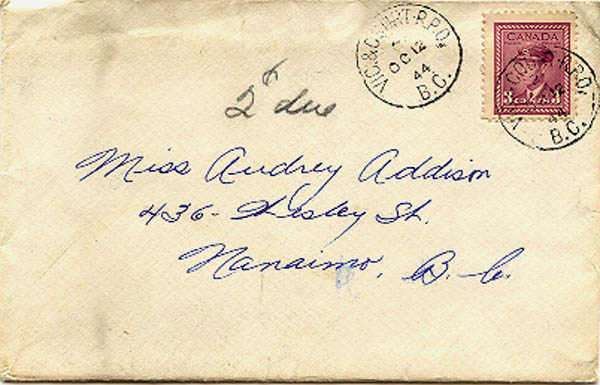 VIC. & COURT. R.P.O.
1
OC 12
44
B.C.
CANADA
3 CANADA 3
R.P.O.
12
44
B.C.
2¢ due
Miss Audrey Addison
436 - Wesley St.
Nanaimo, B.C.